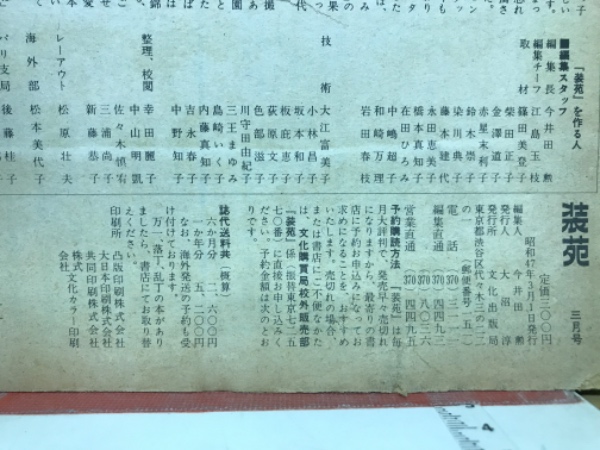 「装苑」を作る人
■編集スタッフ
編集長　今井田勲
編集チーフ　江島玉枝
取材　篠田美登子
柴田正子
金澤道子
赤星末利子
鈴木崇子
染川典子
藤本建代
永田恵美子
橋本真知子
在田ひろみ
中嶋超子
和崎万理
岩田春枝
技術　大江富美子
小林昌子
坂本和子
板庇恵子
荻原文子
色部滋子
川守田由紀子
三王まゆみ
島崎いく子
内藤真知子
吉永春子
中野知子
整理、校閲　幸田麗子
中山明凱
佐々木慎宥
三浦尚子
新藤恭子
レーアウト　松原壮夫
海外部　松本美代子
パリ支局　後藤桂子
装苑　三月号
定価三〇〇円
昭和47年3月1日発行
編集人　今井田勲
発行人　大沼淳
発行所　文化出版局
東京都渋谷区代々木三の二二
の一　（郵便番号一五一）
電話（370）三一一一
編集直通（370）八〇三六
営業直通（370）四四九五
予約購読方法　『装苑』は毎
月大評判で、発売早々売切れ
になりますから、最寄りの書
店に予約お申込みになってお
求めになることを、おすすめ
いたします。売切れの場合、
または書店にご不便なかた
は、文化購買局校外販売部
『装苑』係（振替東京七二五
七〇番）に直接お申し込みく
ださい。予約金額は次のとお
りです。
誌代送料共（概算）
六か月分　二、六〇〇円
一か年分　五、二〇〇円
なお、海外発送の予約も受
け付けております。
万一落丁、乱丁の本があり
ましたら、書店にてお取り替
えください。
印刷所　凸版印刷株式会社
大日本印刷株式会社
共同印刷株式会社
株式会社文化カラー印刷